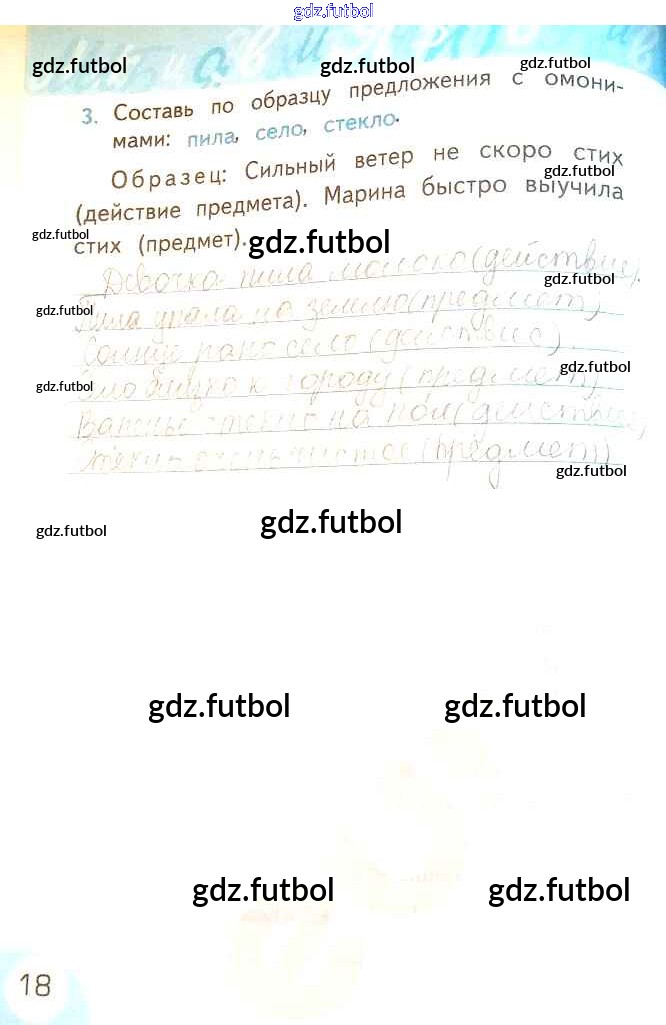 gdz.futbol
gdz.futbol gdz.futbol gdz.futbol
3. Составь по образцу предложения с омони-
мами: пила, село, стекло.
Образец: Сильный ветер не скоро стих
gdz.futbol
(действие предмета). Марина быстро выучила
gdz.futbol
стих (предмет).
gdz.futbol
Девочка пила молоко (действие).
gdz.futbol
Пила упала на землю (предмет)
gdz.futbol
село (действие).
gdz.futbol
близко к городу (предмет)
gdz.futbol
на пол (действие)
(предмет)
gdz.futbol
gdz.futbol
gdz.futbol
gdz.futbol gdz.futbol
gdz.futbol gdz.futbol
18